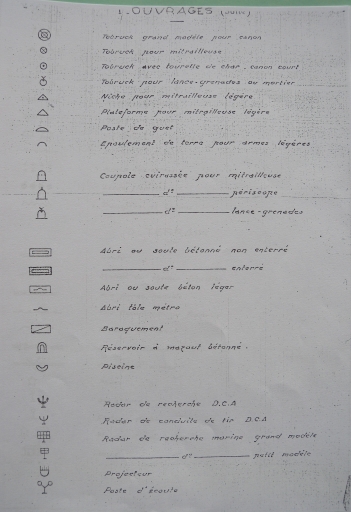 1. OUVRAGES (suite)
Tobruck grand modèle pour canon
Tobruck pour mitrailleuse
Tobruck avec tourelle de char. canon court
Tobruck pour lance-grenades ou mortier
Niche pour mitrailleuse légère
Plateforme pour mitrailleuse légère
Poste de guet
Epaulement de terre pour armes légères
Coupole cuirassée pour mitrailleuse
d° périscope
d° lance-grenades
Abri ou soute bétonné non enterré
d° enterré
Abri ou soute béton léger
Abri tôle métro
Baraquement
Réservoir à mazout bétonné.
Piscine
Radar de recherche D.C.A
Radar de conduite de tir D.C.A
Radar de recherche marine grand modèle
d° petit modèle
Projecteur
Poste d'écoute